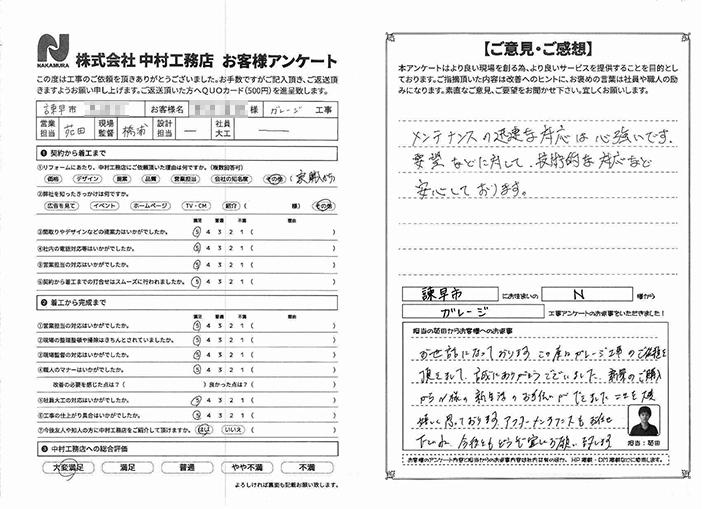 NAKAMURA
株式会社 中村工務店 お客様アンケート
この度は工事のご依頼を頂きありがとうございました。お手数ですがご記入頂き、ご返送頂
きますようお願い申し上げます。ご返送頂いた方へQUOカード(500円)を進呈致します。
諫早市 お客様名 様 ガレージ 工事
営業担当 苑田 現場監督 橋浦 設計担当 ー 社員大工 ー
❶ 契約から着工まで
①リフォームにあたり、中村工務店にご依頼頂いた理由は何ですか。(複数回答可)
価格 デザイン 提案 品質 営業担当 会社の知名度 その他
②弊社を知ったきっかけは何ですか。
広告を見て イベント ホームページ TV・CM 紹介 ( 様) その他
満足 普通 不満 理由
③間取りやデザインなどの提案力はいかがでしたか。 5 4 3 2 1 ( )
④社内の電話対応等はいかがでしたか。 5 4 3 2 1 ( )
⑤営業担当の対応はいかがでしたか。 5 4 3 2 1 ( )
⑥契約から着工までの打合せはスムーズに行われましたか。 5 4 3 2 1 ( )
❷ 着工から完成まで
満足 普通 不満 理由
①営業担当の対応はいかがでしたか。 5 4 3 2 1 ( )
②現場の整理整頓や掃除はきちんとされていましたか。 5 4 3 2 1 ( )
③現場監督の対応はいかがでしたか。 5 4 3 2 1 ( )
④職人のマナーはいかがでしたか。 5 4 3 2 1 ( )
改善の必要を感じた点は?( )良かった点は?( )
⑤社員大工の対応はいかがでしたか。 5 4 3 2 1 ( )
⑥工事の仕上がり具合はいかがでしたか。 5 4 3 2 1 ( )
⑦今後友人や知人の方に中村工務店をご紹介して頂けますか。 はい いいえ ( )
❸ 中村工務店への総合評価
大変満足 満足 普通 やや不満 不満
よろしければ裏面も記載お願い致します。
【ご意見・ご感想】
本アンケートはより良い現場を創る為、より良いサービスを提供することを目的とし
ております。ご指摘頂いた内容は改善へのヒントに、お褒めの言葉は社員や職人の励
みになります。素直なご意見、ご要望をお聞かせ下さい。宜しくお願い致します。
メンテナンスの迅速な対応は心強いです。
要望などに対して、技術的な対応など
安心しております。
諫早市 にお住まいの N 様から
ガレージ 工事アンケートのお返事をいただきました!
担当の苑田からお客様へのお返事
お世話になっております。この度はガレージ工事のご依頼を
頂きまして、誠にありがとうございました。新築のご購入
からN様の新生活のお手伝いができましたことを大変
嬉しく思っております。アフターメンテナンスもお任せ
下さいね。今後ともどうぞ宜しくお願い致します
担当:苑田